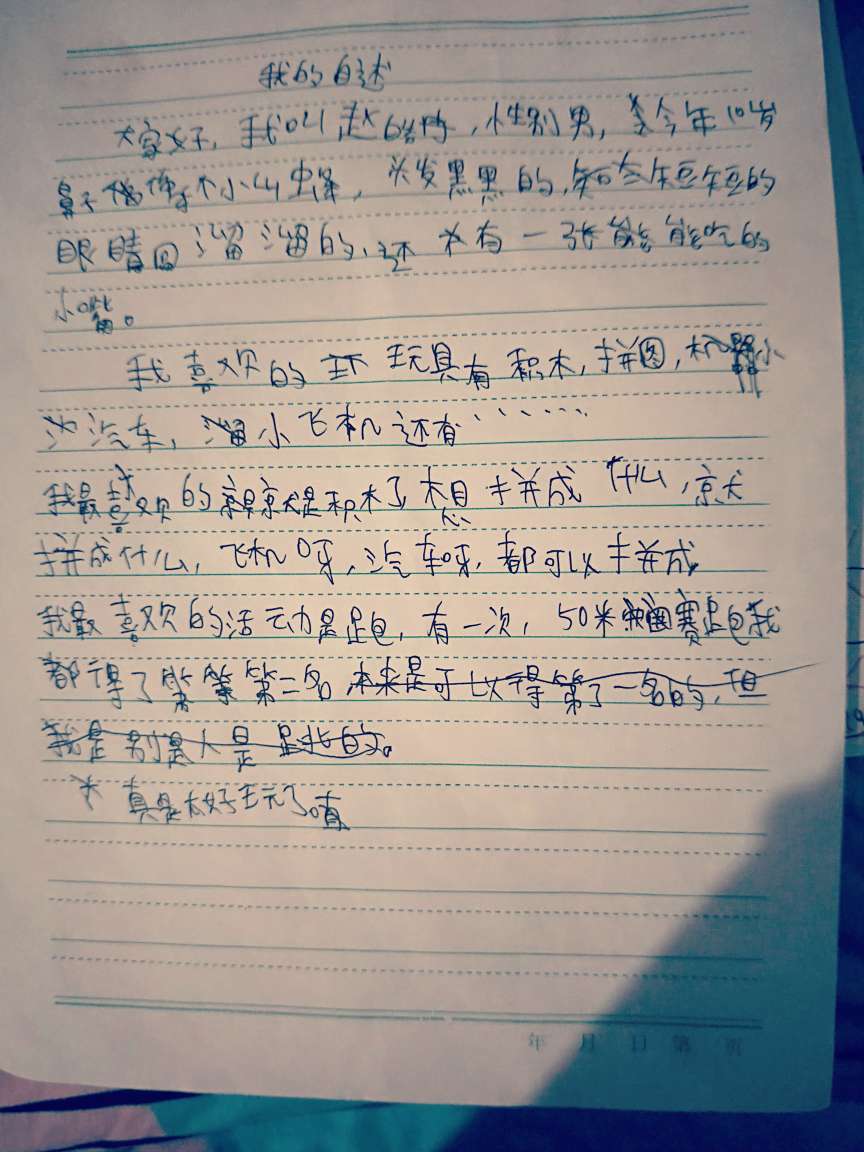 我的自述
大家好，我叫赵，性别男，今年10岁
鼻子像个小山蜂，头发黑黑的，短短的
眼睛圆溜溜的，还有一张能能吃的
小嘴。
我喜欢的玩具有积木，拼图，机器小
汽车，小飞机还有……
我最喜欢的就是积木了想拼成什么，就
拼成什么，飞机呀，汽车呀，都可以拼成
我最喜欢的活动是跑，有一次，50米赛跑我
都得了第二名本来是可以得第了一名的，但
我是别是人是是的。
真是太好玩了。
年 月 日 第 页